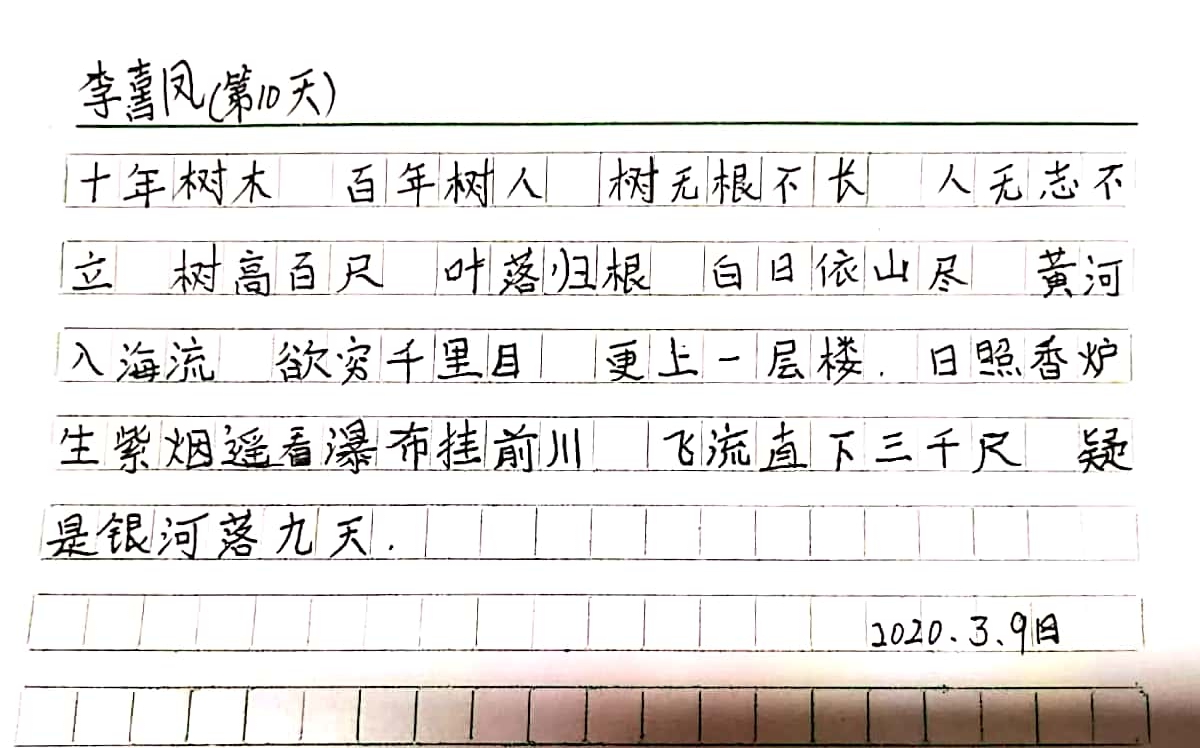 李喜凤(第10天)
十年树木 百年树人 树无根不长 人无志不
立 树高百尺 叶落归根 白日依山尽 黄河
入海流 欲穷千里目 更上一层楼. 日照香炉
生紫烟遥看瀑布挂前川 飞流直下三千尺 疑
是银河落九天.
2020.3.9日